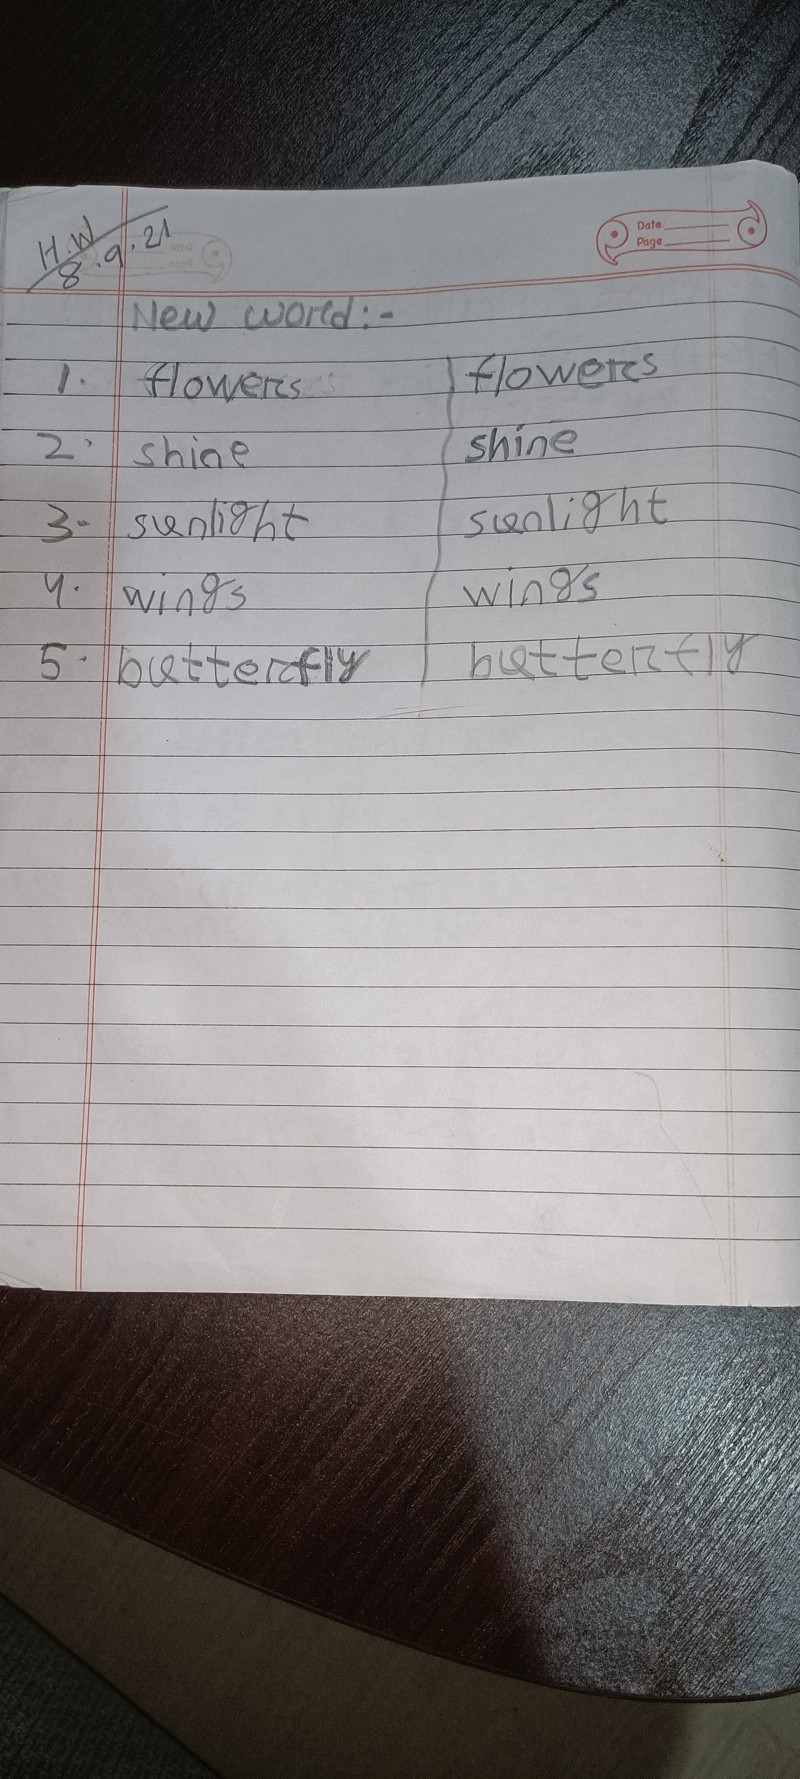 H.W
8.9.21
Date
Page
New world:-
1. flowers flowers
2. shine shine
3- sunlight sunlight
4. wings wings
5. butterfly butterfly